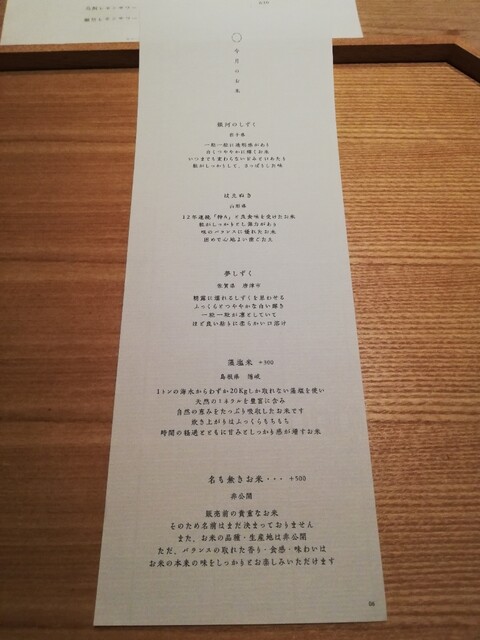 〇 今月のお米
銀河のしずく
岩手県
一粒一粒に透明感があり
白くつややかに輝くお米
いつまでも変わらない甘みと口あたり
粒がしっかりして、さっぱりした味
はえぬき
山形県
12年連続「特A」と良食味を受けたお米
粒がしっかりとし弾力があり
味のバランスに優れたお米
固めで心地よい歯ごたえ
夢しずく
佐賀県 唐津市
綺麗に濡れるしずくを思わせる
ふっくらとつややかな白い輝き
一粒一粒が凛としていて
ほど良い粘りに柔らかい口溶け
藻塩米 +300
島根県 隠岐
1トンの海水からわずか20Kgしか取れない藻塩を使い
天然のミネラルを豊富に含み
自然の恵みをたっぷり吸収したお米です
炊き上がりはふっくらもちもち
時間の経過とともに甘みとしっかり感が増すお米
名も無きお米・・・ +500
非公開
販売前の貴重なお米
そのため名前はまだ決まっておりません
また、お米の品種・生産地は非公開
ただ、バランスの取れた香り・食感・味わいは
お米の本来の味をしっかりとお楽しみいただけます
06